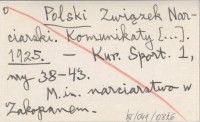 o Polski Związek Nar-
ciarski. Komunikaty [...].
1925. — Kur. Sport. 1,
nry 38-43.
M.in. narciarstwo w
Zakopanem.